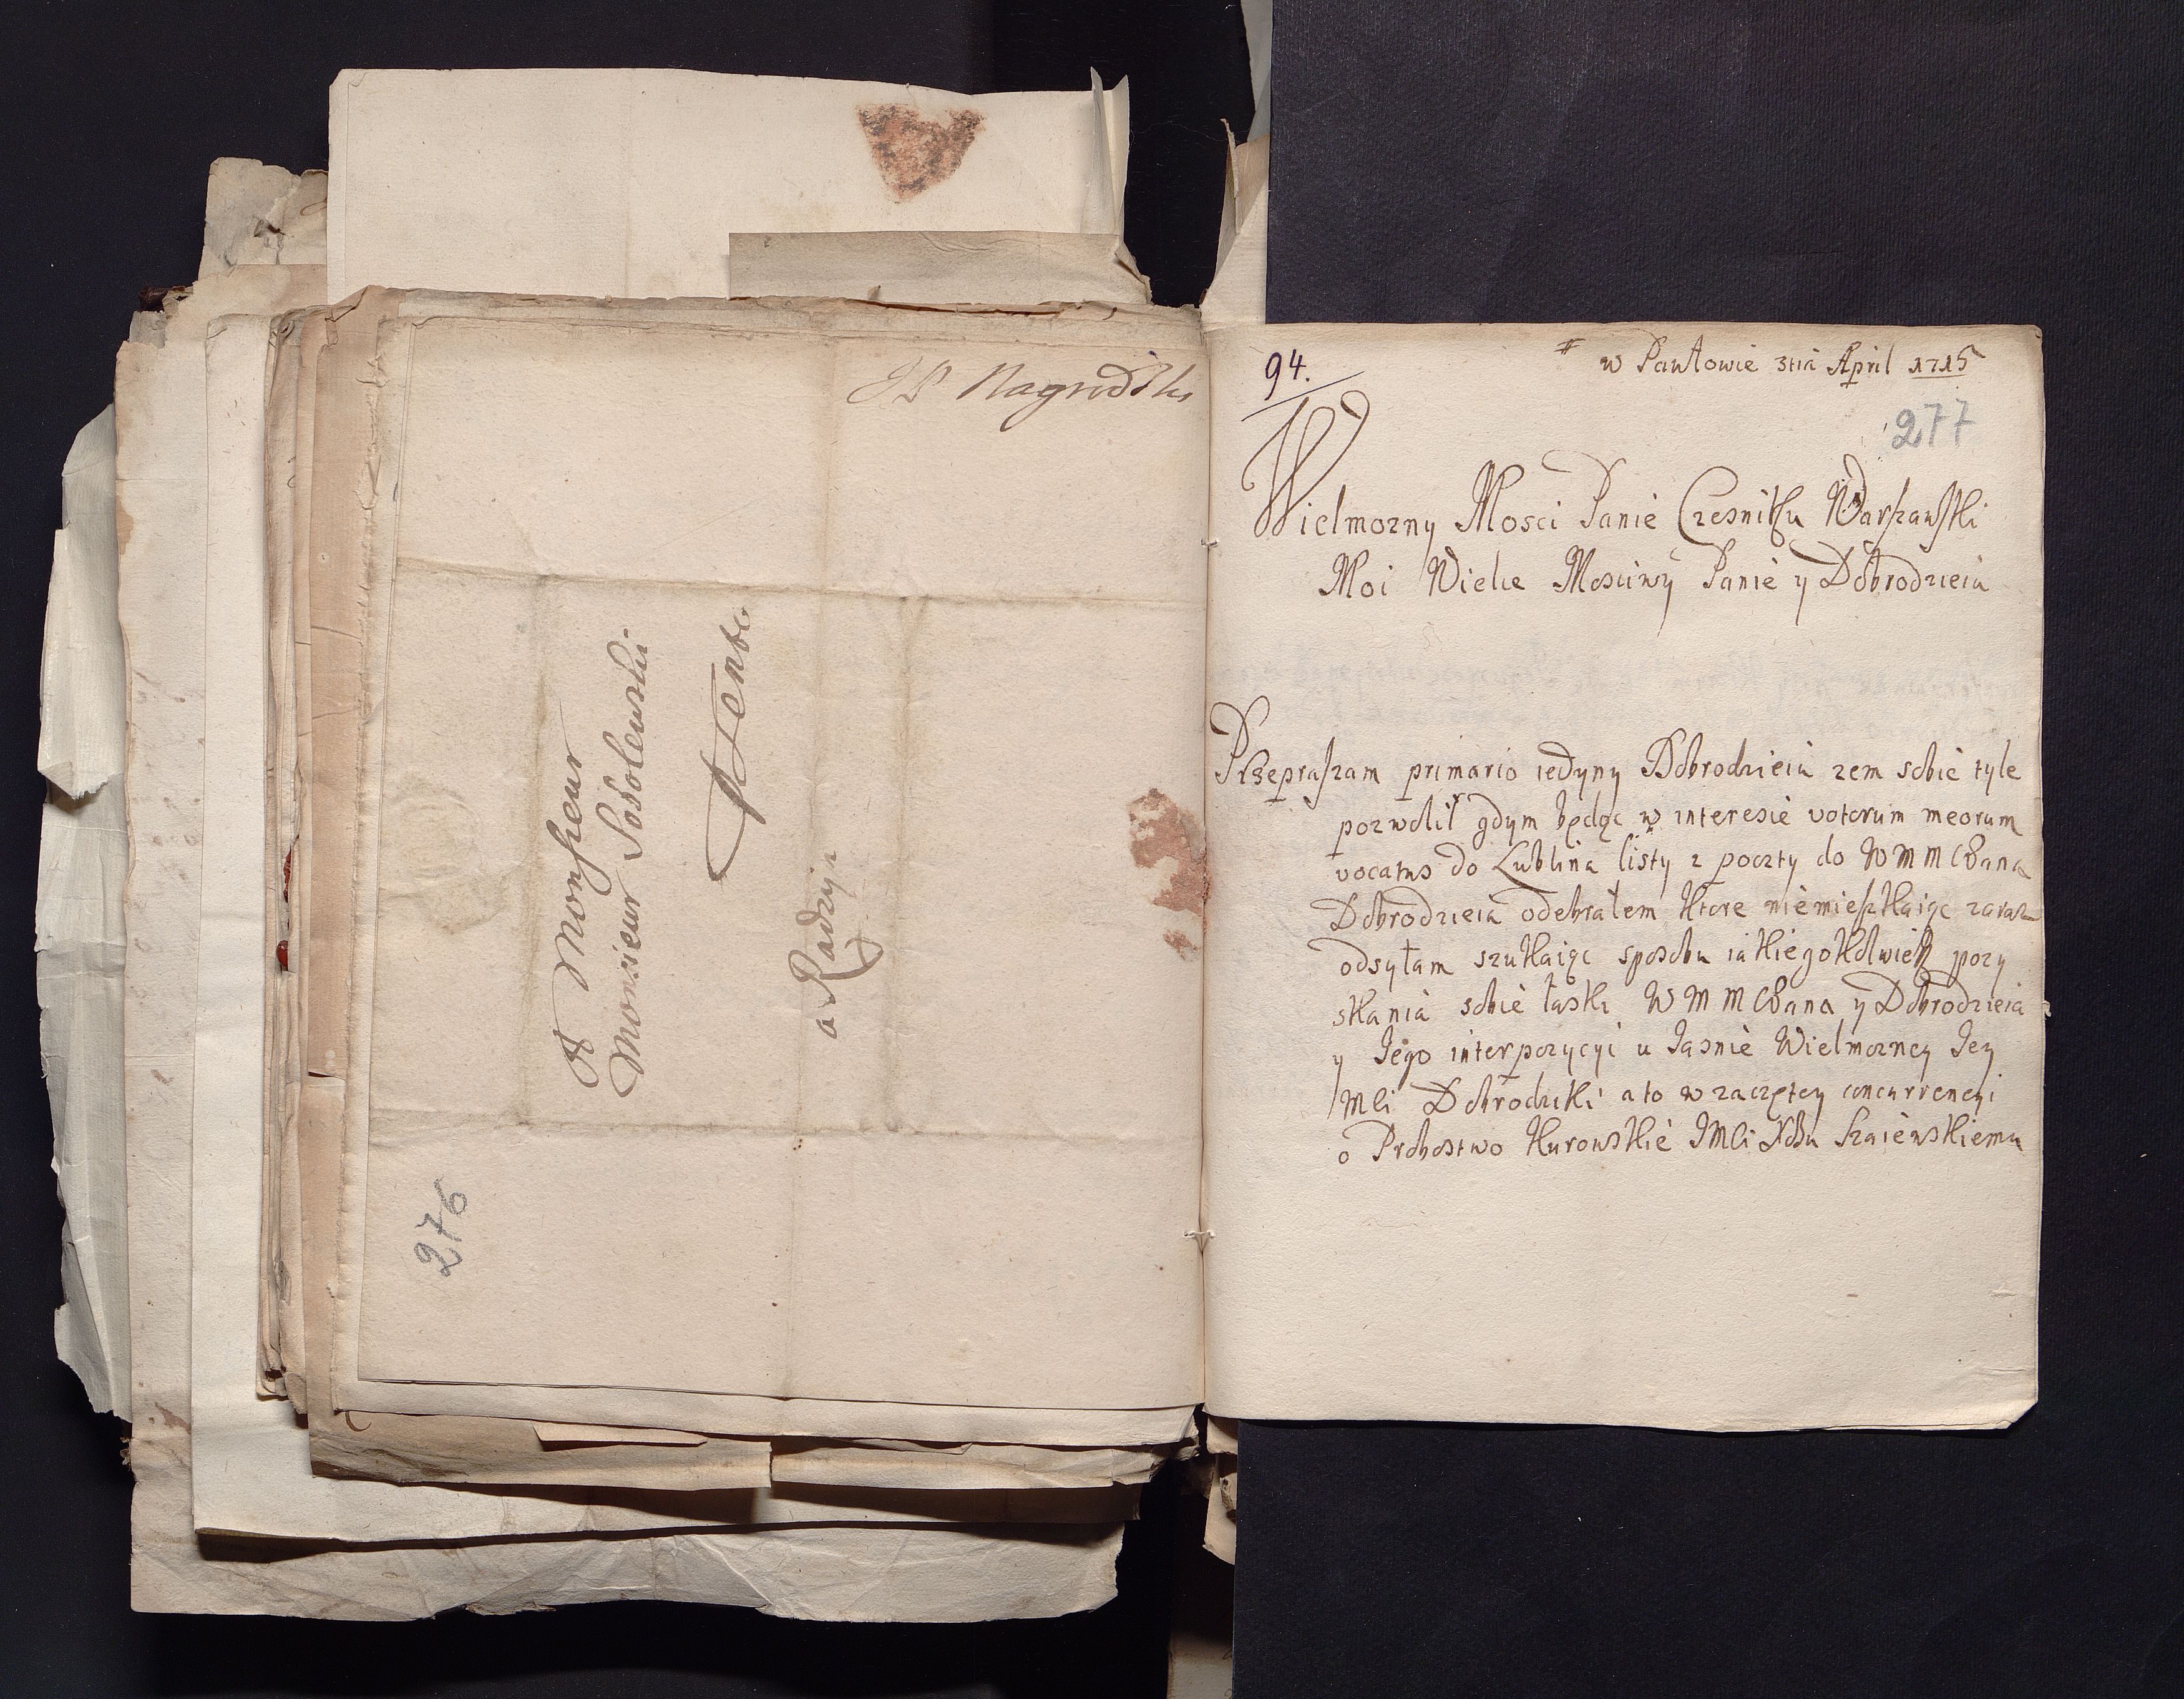 JP Nagrodzki
A Monsieur
Monsieur Sobolewski
a Radzyn
276
94.
w Pawłowie 3tia April 1715
277
Wielmozny Mosci Panie Czesniku Warszawski
Moi Wielce Mosciwy Panie y Dobrodzieiu
Przepraszam primario iedyny Dobrodzieiu zem sobie tyle
pozwolił gdym będąc w interesie votorum meorum
vocatus do Lublina listy z poczty do WMM Pana
Dobrodzieia odebrałem ktore niemieszkaiąc zaraz
odsyłam szukaiąc sposobu iakiegokolwiek pozy
skania sobie łaski WMM Pana y Dobrodzieia
y Jego interpozycyi u Jasnie Wielmozney Jey
Mci Dobrodziki a to w zaczętey concurrencyi
o Probostwo Kurowskie JMCi Xdzu Szaiewskiemu